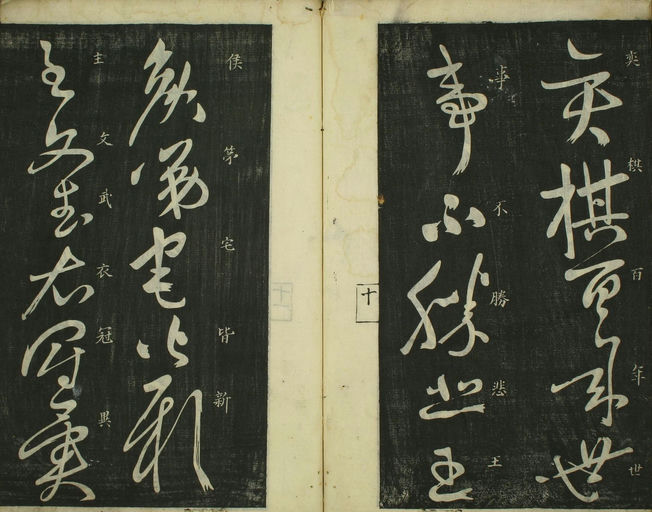 奕棋百年世
事不勝悲王
十
侯第宅皆新
主文武衣冠異